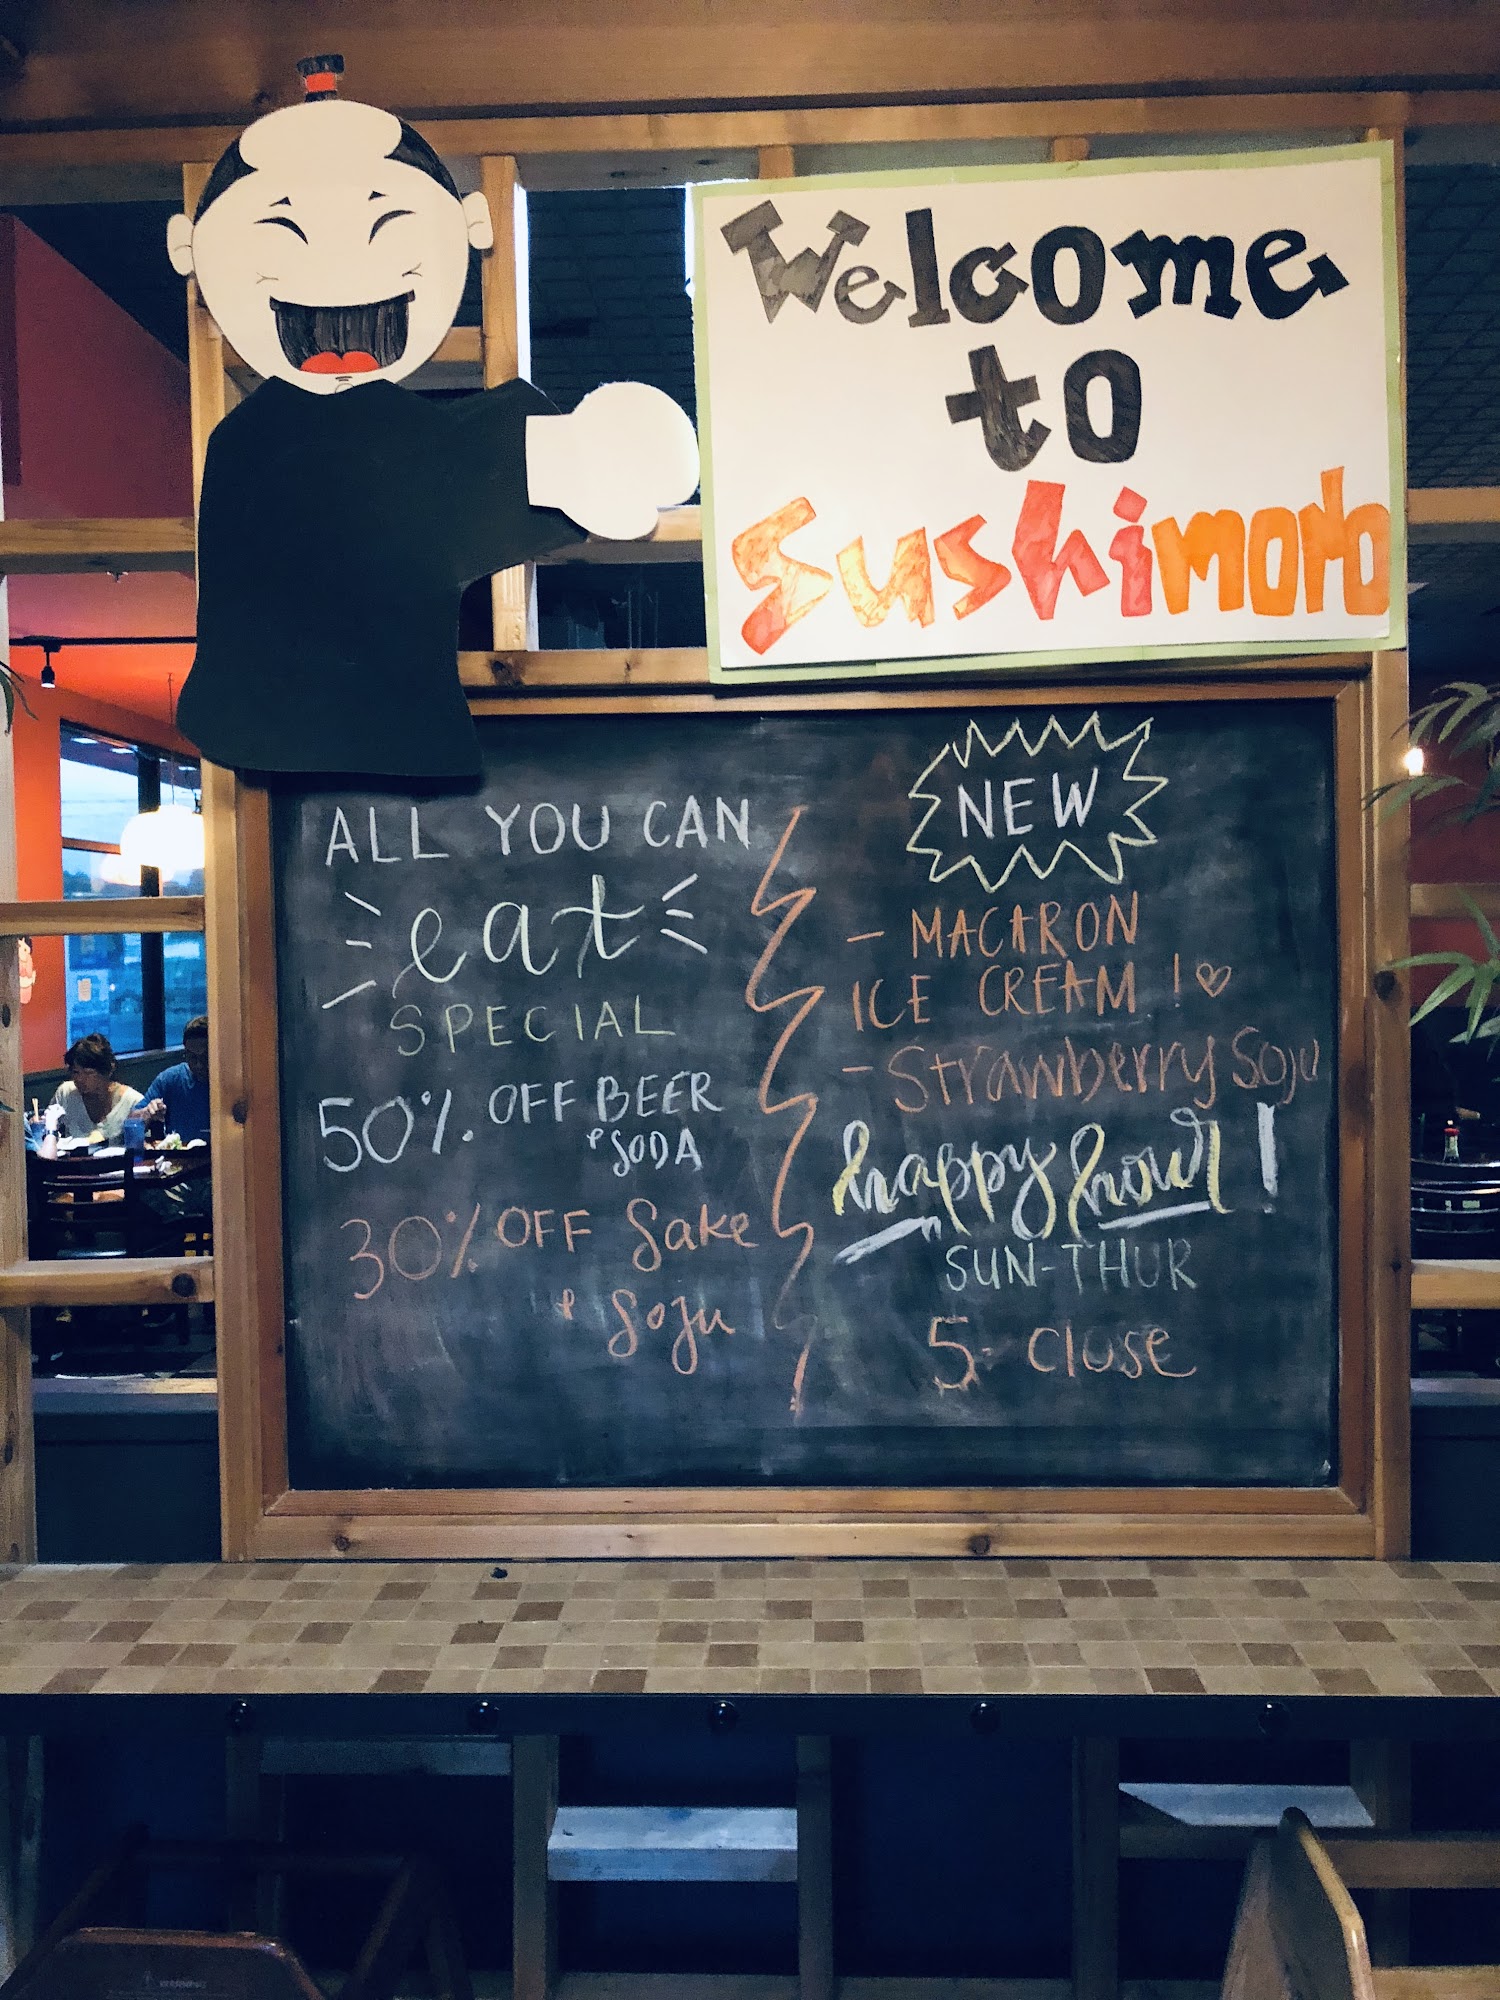 Welcome
to
Sushimoto
ALL YOU CAN
eat
SPECIAL
50% OFF BEER
& SODA
30% OFF Sake
& Soju
NEW
- MACARON
ICE CREAM ! ♡
- Strawberry Soju
happy hour !
SUN-THUR
5 - Close